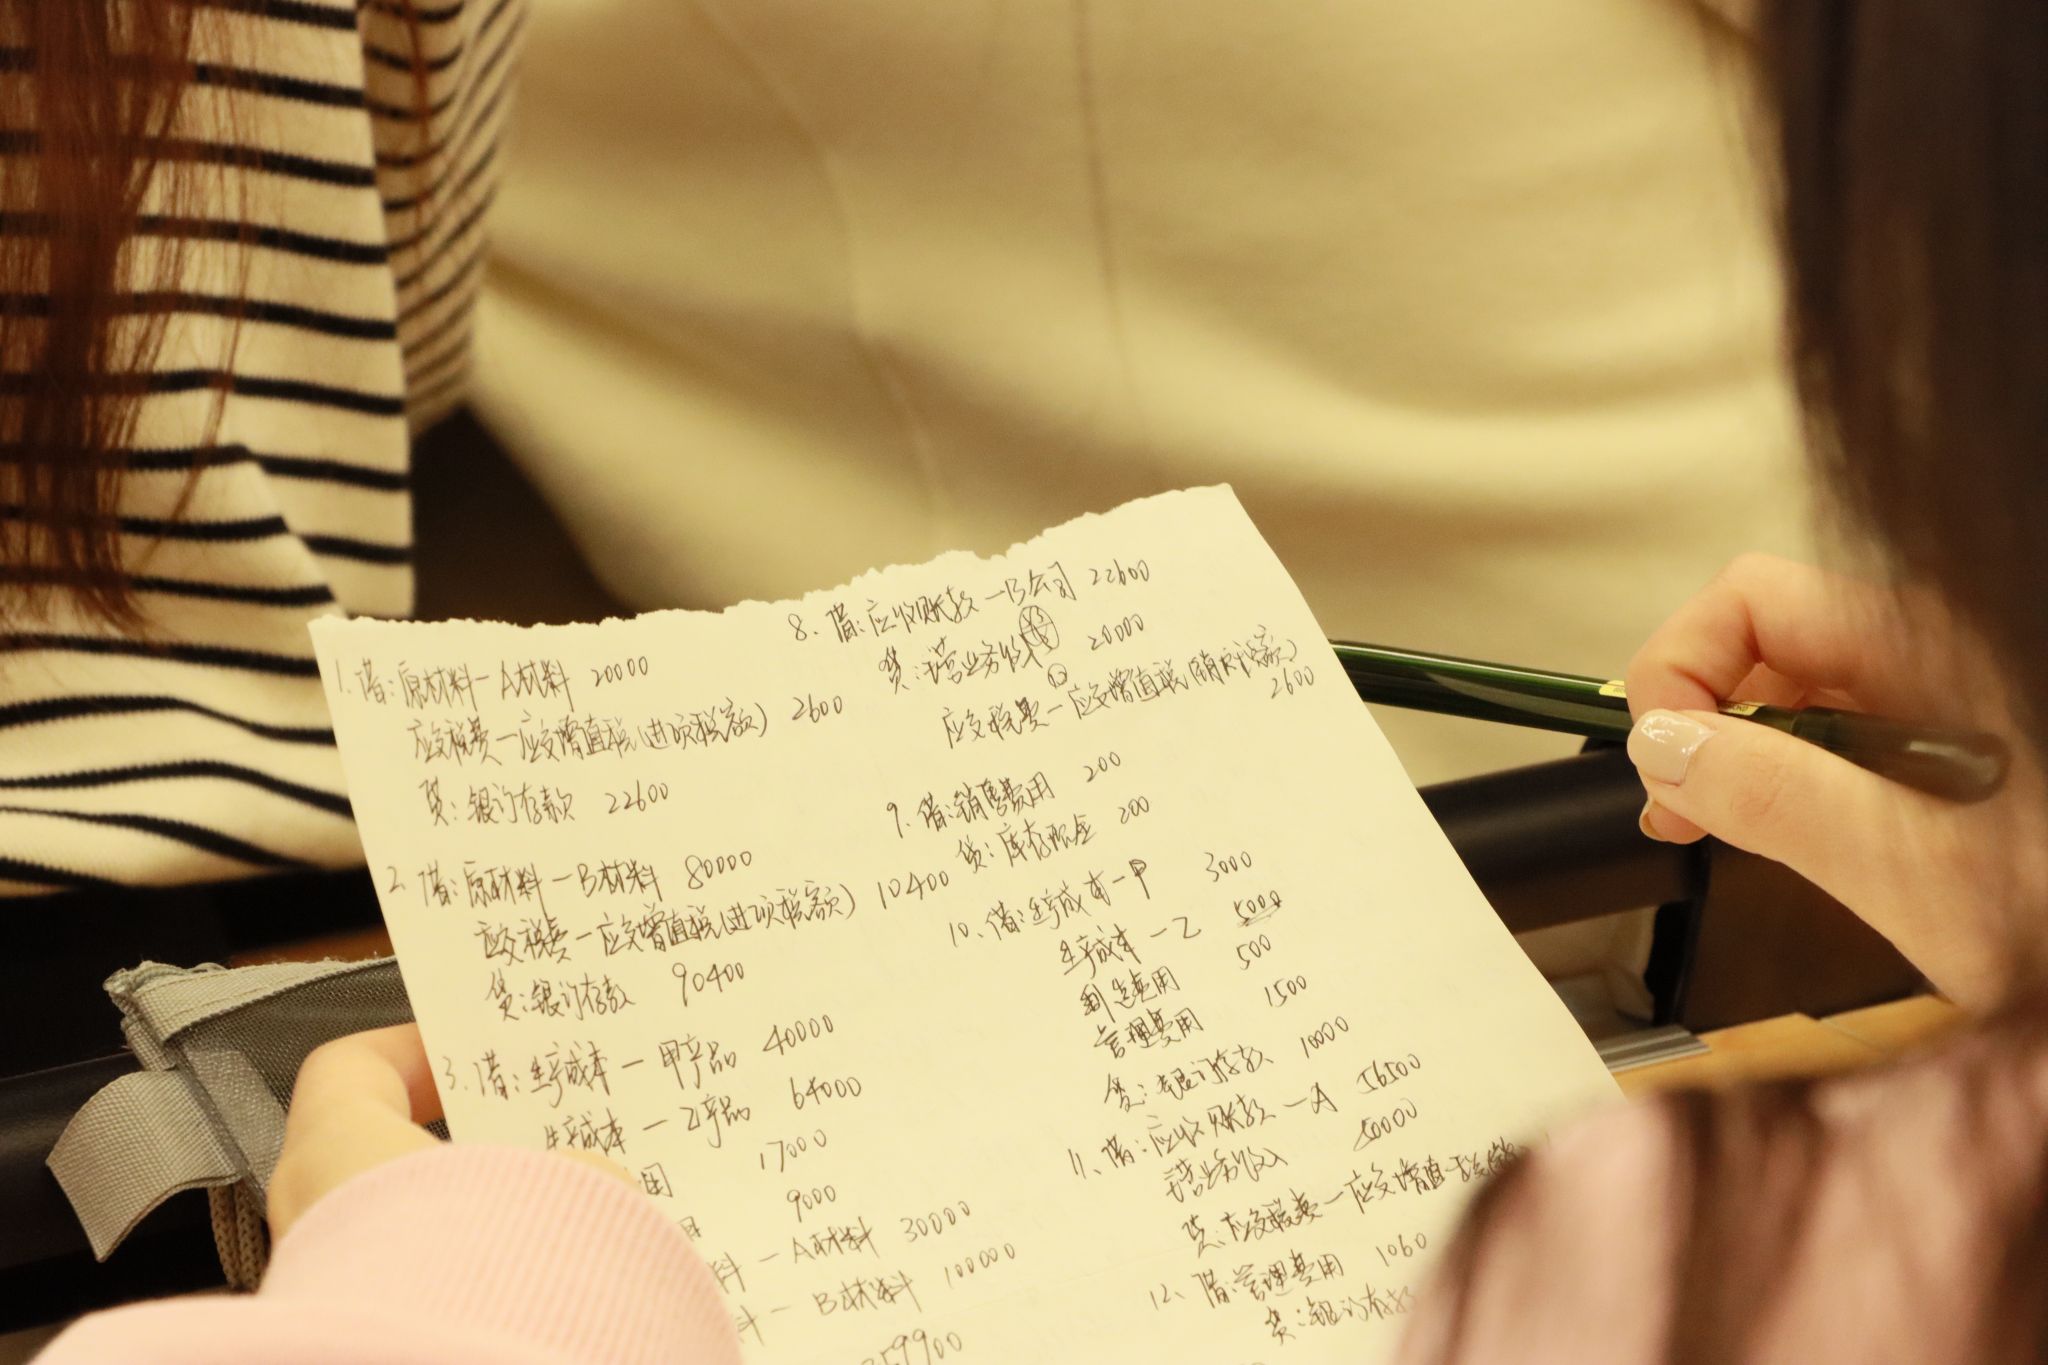 1. 借:原材料—A材料 20000
应交税费—应交增值税(进项税额) 2600
贷:银行存款 22600
2. 借:原材料—B材料 80000
应交税费—应交增值税(进项税额) 10400
贷:银行存款 90400
3. 借:生产成本—甲产品 40000
生产成本—乙产品 64000
用 17000
用 9000
料—A材料 30000
料—B材料 100000
8、借:应收账款—B公司 22600
贷:主营业务收入 20000
应交税费—应交增值税(销项税额)
2600
9、借:销售费用 200
贷:库存现金 200
10、借:生产成本—甲 3000
生产成本—乙 5000
制造费用 500
管理费用 1500
贷:银行存款 10000
11、借:应收账款—A 56500
主营业务收入 50000
贷:应交税费—应交增值税
12、借:管理费用 1060
贷:银行存款